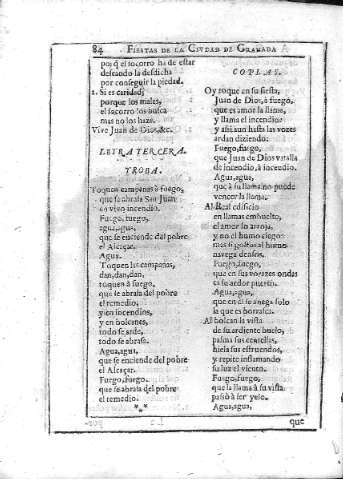 84 FIESTAS DE LA CIVDAD DE GRANADA
porq̃ el socorro ha de estar
deseando la desdicha
por conseguir la piedad.
1. Si es caridad,
porque los males,
el socorro los busca
mas no los haze.
Viva Juan de Dios, &c.
LETRA TERCERA.
TROBA.
Toquen campanas à fuego,
que se abrasa San Juan
en vivo incendio.
Fuego, fuego,
agua, agua,
que se enciende del pobre
el Alcaçar.
Agua.
Toquen las campanas,
dan, dan, dan,
toquen à fuego,
que se abrasa del pobre
el remedio,
y en incendios,
y en bolcanes,
todo se arde,
todo se abrase.
Agua, agua,
que se enciende del pobre
el Alcaçar.
Fuego, fuego.
que se abrasa del pobre
el remedio.
COPLAS.
Oy toque en su fiesta,
Juan de Dios, à fuego,
que es amor la llame,
y llama el incendio:
y assi aun hasta las vozes
ardan diziendo:
Fuego, fuego,
que Juan de Dios
de incendio, à incendio.
Agua, agua,
que à su llama no puede
vencer la llama.
Al Real edificio
en llamas embuelto,
el amor lo arroja,
y no el humo ciego:
mas si
navega
Fuego, fuego,
que en sus vorazes ondas
Agua, agua,
que en èl se anega solo
la que es borrasca.
Al bolcan la vista
de su ardiente buelo,
pasma sus centellas,
hiela sus estruendos,
y repite inflamando
su luz el viento.
Fuego, fuego,
que la llama à su vista
passò à ser yelo.
Agua, agua,
que